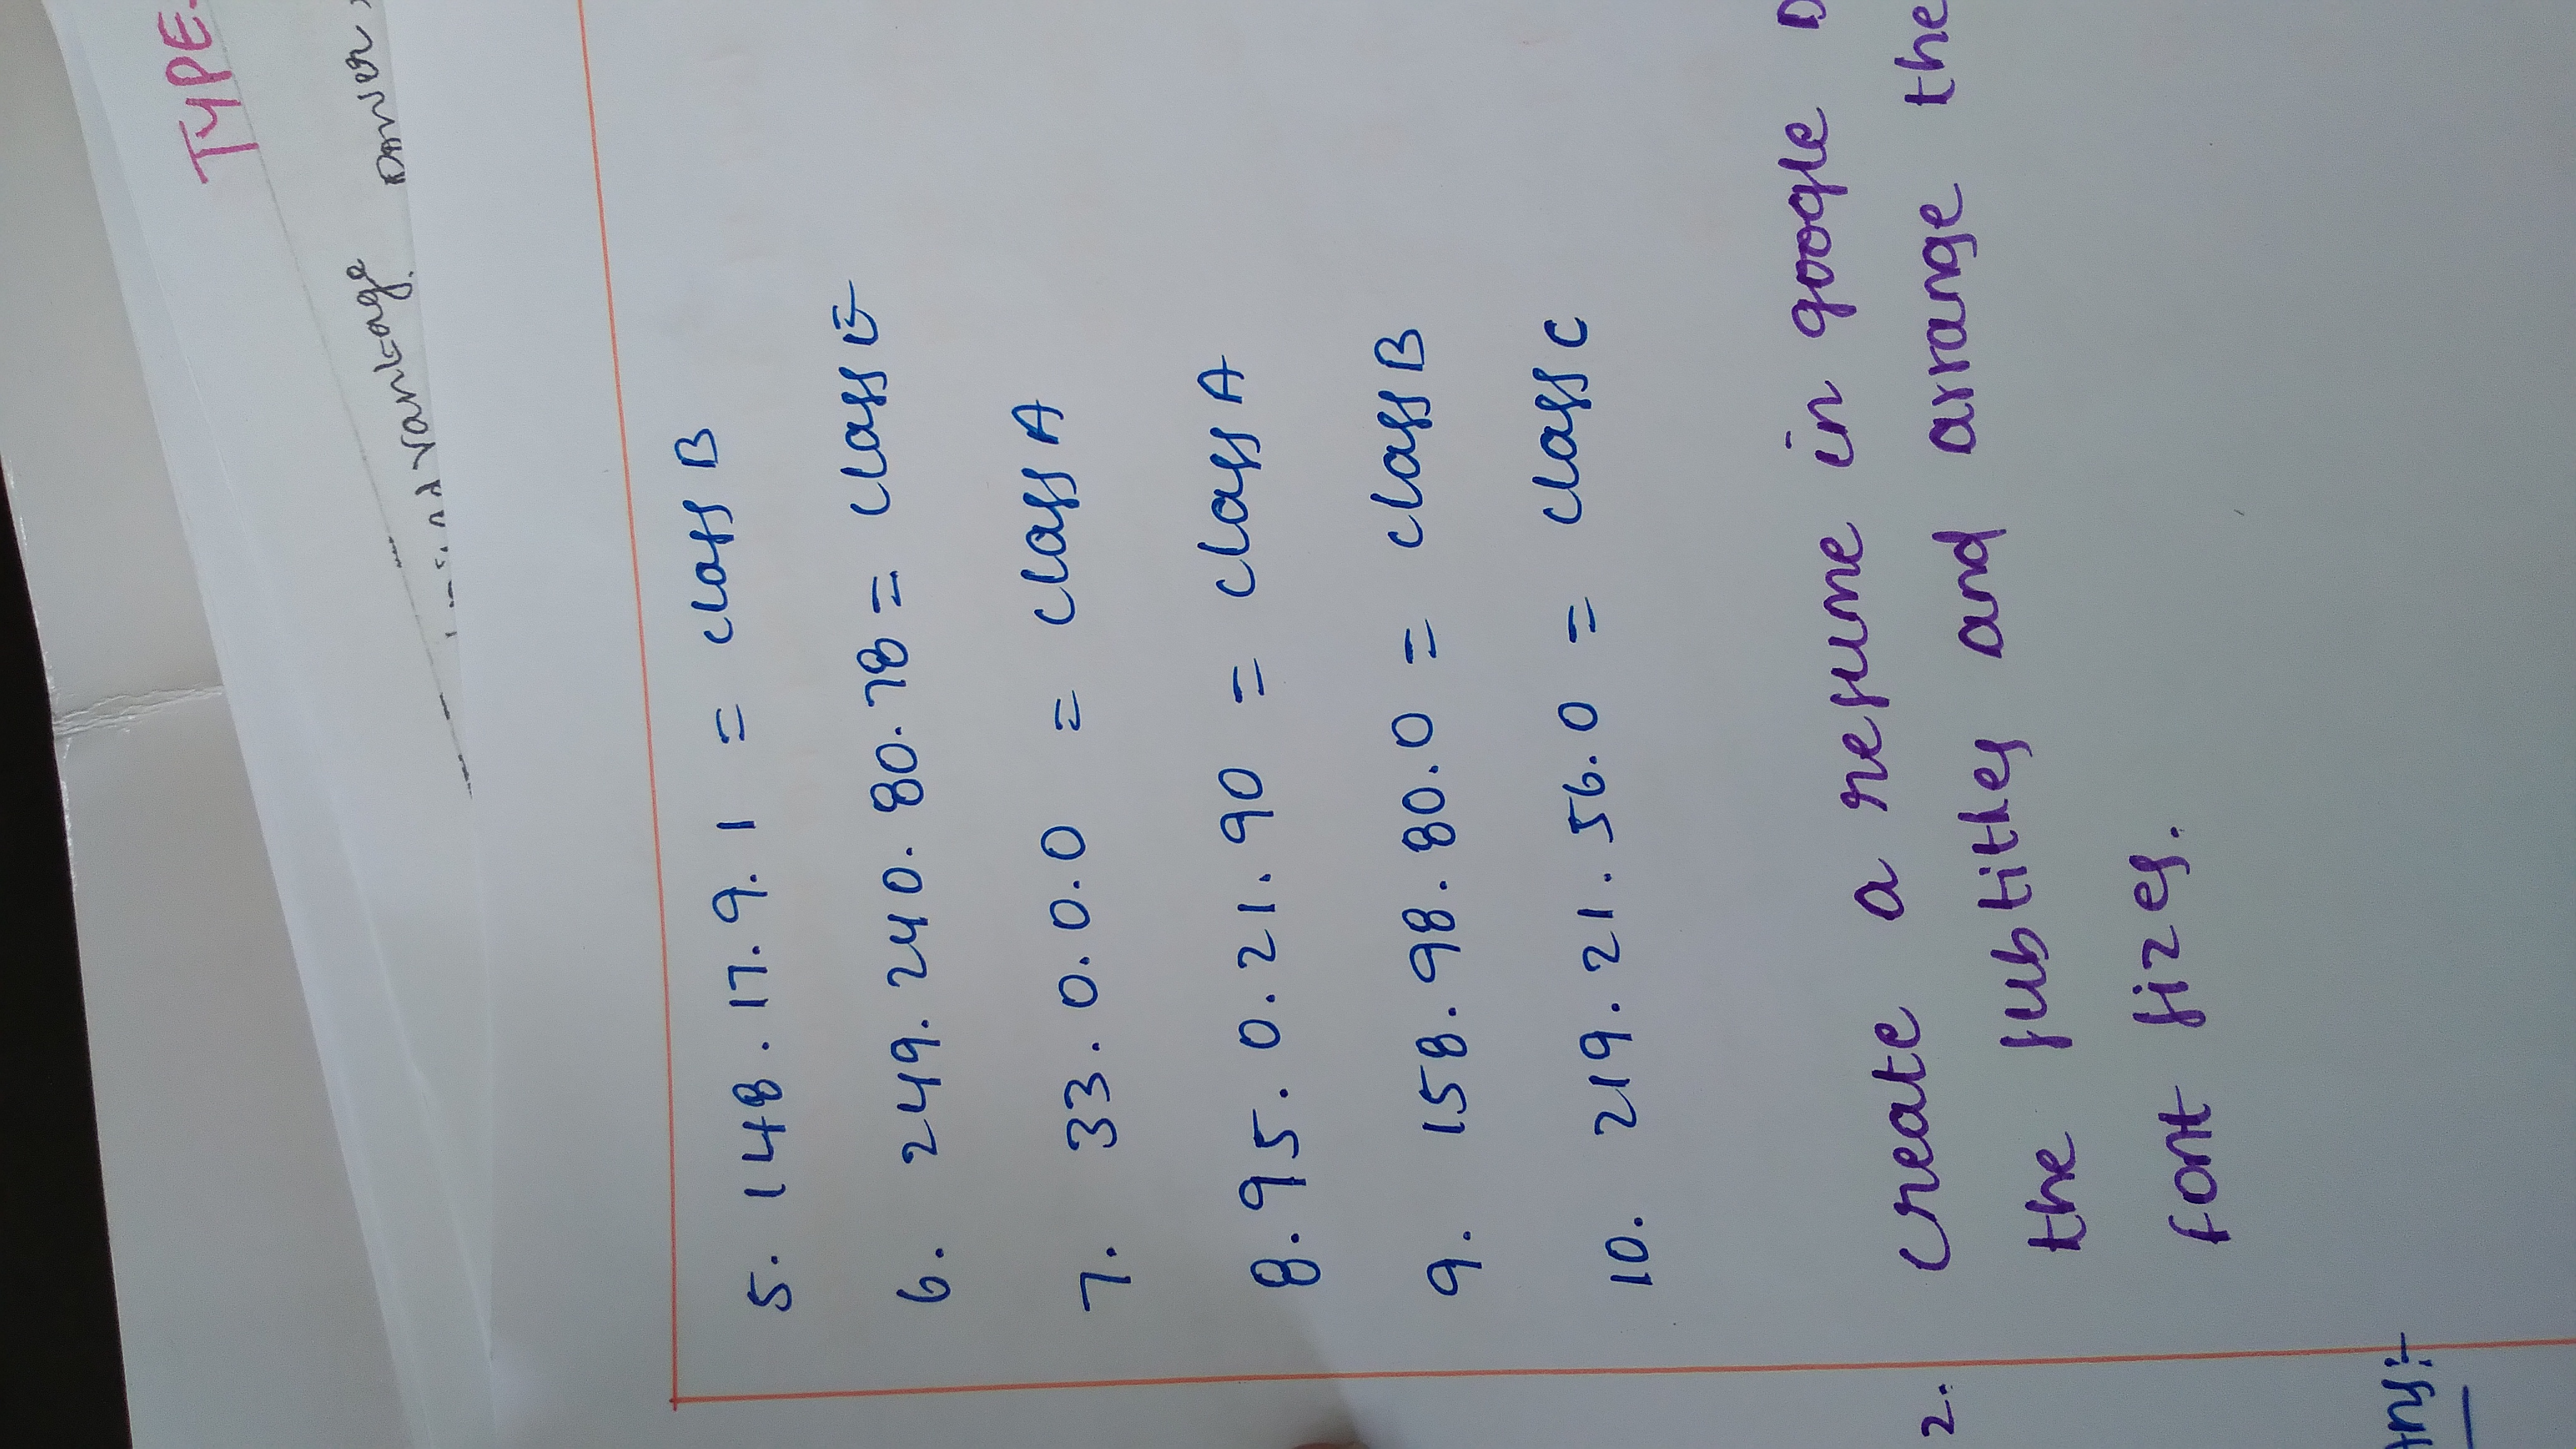 TYPE
advantage
power,
5. 148.17.9.1 = class B
6. 249.240.80.78 = class E
7. 33.0.0.0 = class A
8. 95.0.21.90 = class A
9. 158.98.80.0 = class B
10. 219.21.56.0 = class C
2. create a resume in google D
the subtitles and arrange the
font sizes.
Ans:-